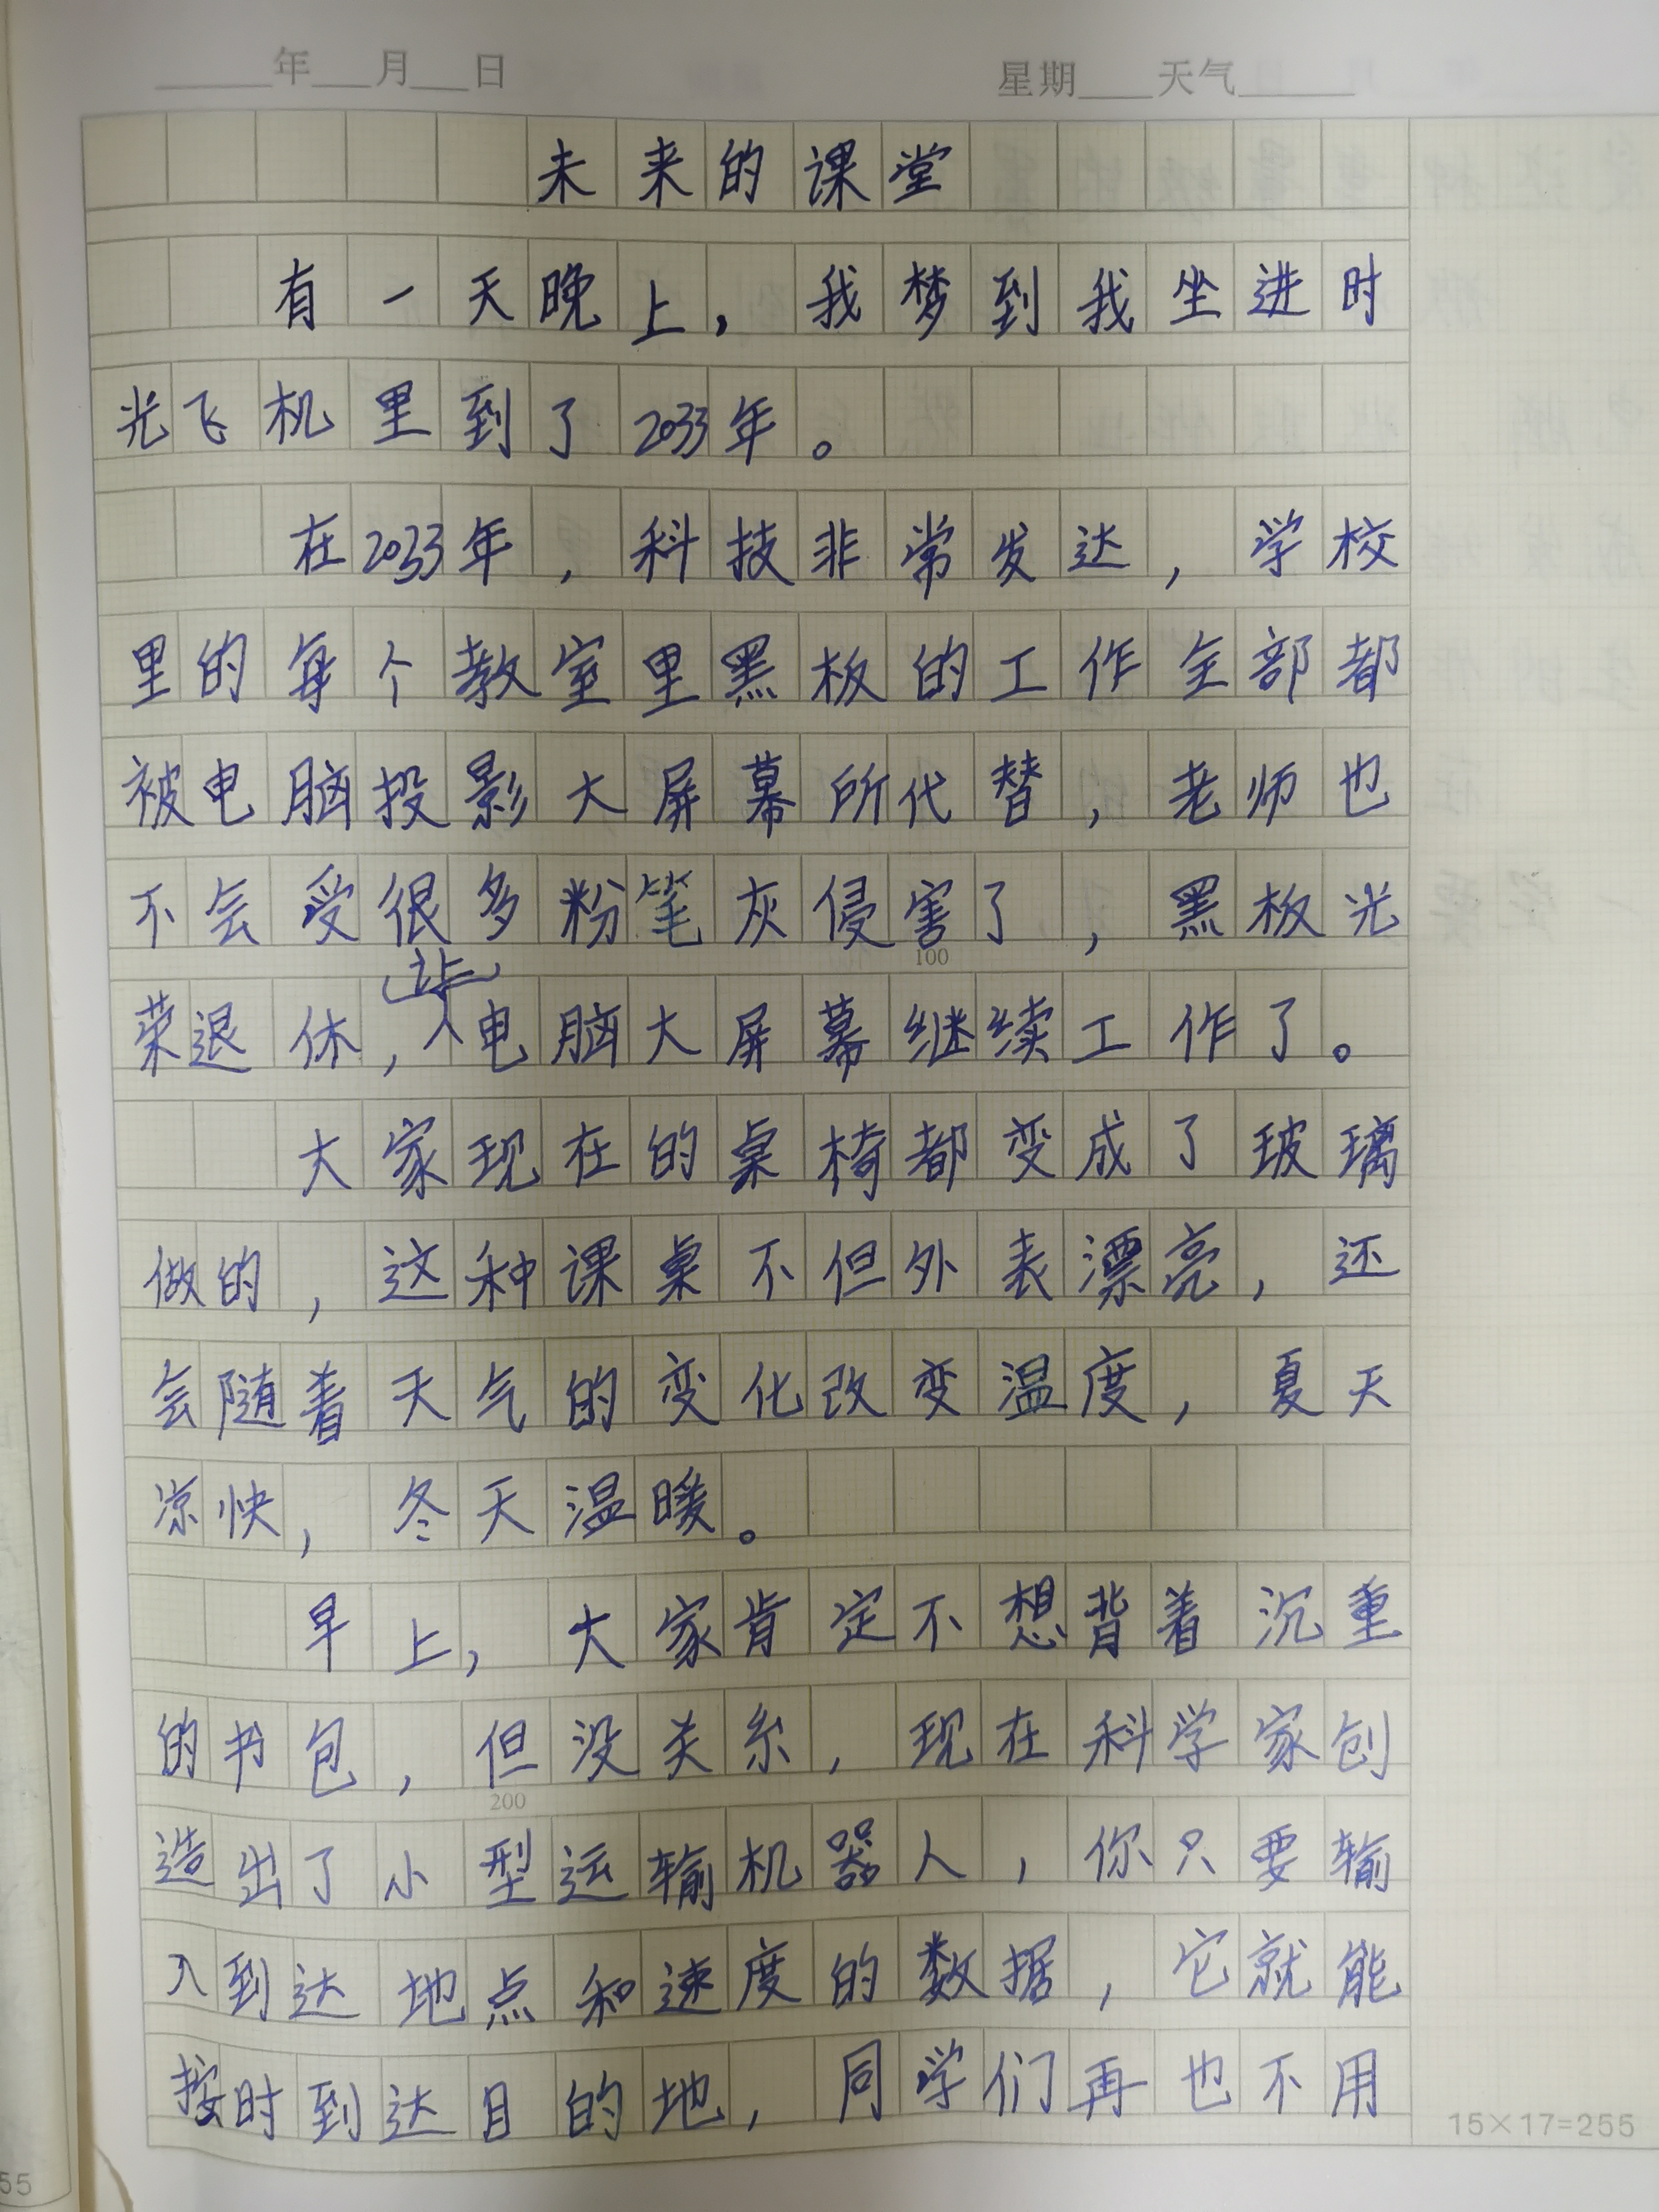 年 月 日 星期 天气
未来的课堂
有一天晚上，我梦到我坐进时
光飞机里到了2033年。
在2033年，科技非常发达，学校
里的每个教室里黑板的工作全部都
被电脑投影大屏幕所代替，老师也
不会受很多粉笔灰侵害了，黑板光
100
荣退休，让电脑大屏幕继续工作了。
大家现在的桌椅都变成了玻璃
做的，这种课桌不但外表漂亮，还
会随着天气的变化改变温度，夏天
凉快，冬天温暖。
早上，大家肯定不想背着沉重
的书包，但没关系，现在科学家创
200
造出了小型运输机器人，你只要输
入到达地点和速度的数据，它就能
按时到达目的地，同学们再也不用
15×17=255
55